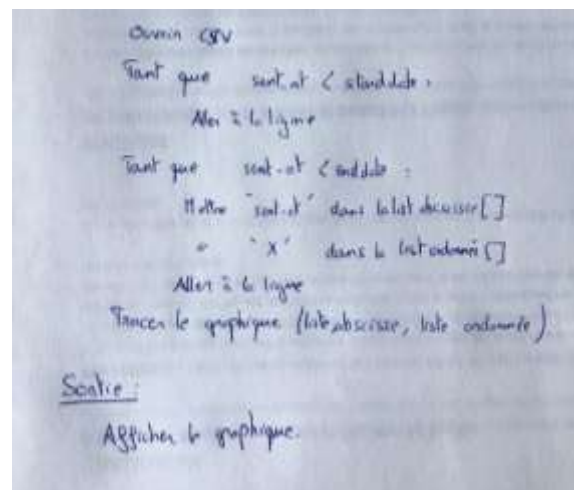 Ouvrir CSV
Tant que sent_at < startdate :
Aller à la ligne
Tant que sent_at < enddate :
Mettre "sent_at" dans la list abscisse []
" "X" dans la list ordonnée []
Aller à la ligne
Tracer le graphique (liste abscisse, liste ordonnée)
Sortie :
Afficher le graphique.